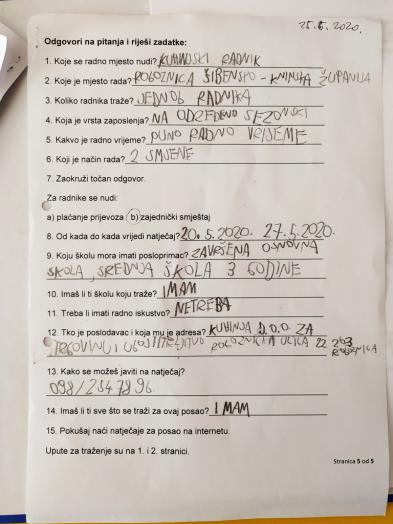 25.5.2020.
Odgovori na pitanja i riješi zadatke:
1. Koje se radno mjesto nudi? KUHINJSKI RADNIK
2. Koje je mjesto rada? ROGOZNICA ŠIBENSKO-KNINSKA ŽUPANIJA
3. Koliko radnika traže? JEDNOG RADNIKA
4. Koja je vrsta zaposlenja? NA ODREĐENO SEZONSKI
5. Kakvo je radno vrijeme? PUNO RADNO VRIJEME
6. Koji je način rada? 2 SMJENE
7. Zaokruži točan odgovor.
Za radnike se nudi:
a) plaćanje prijevoza b) zajednički smještaj
8. Od kada do kada vrijedi natječaj? 20.5.2020. 27.5.2020.
9. Koju školu mora imati posloprimac? ZAVRŠENA OSNOVNA
ŠKOLA, SREDNJA ŠKOLA 3 GODINE
10. Imaš li ti školu koju traže? IMAM
11. Treba li imati radno iskustvo? NETREBA
12. Tko je poslodavac i koja mu je adresa? KUHINJA D.O.O. ZA
TRGOVINU I ULICA 22 203
13. Kako se možeš javiti na natječaj?
098/2347896
14. Imaš li ti sve što se traži za ovaj posao? IMAM
15. Pokušaj naći natječaje za posao na internetu.
Upute za traženje su na 1. i 2. stranici.
Stranica 5 od 5